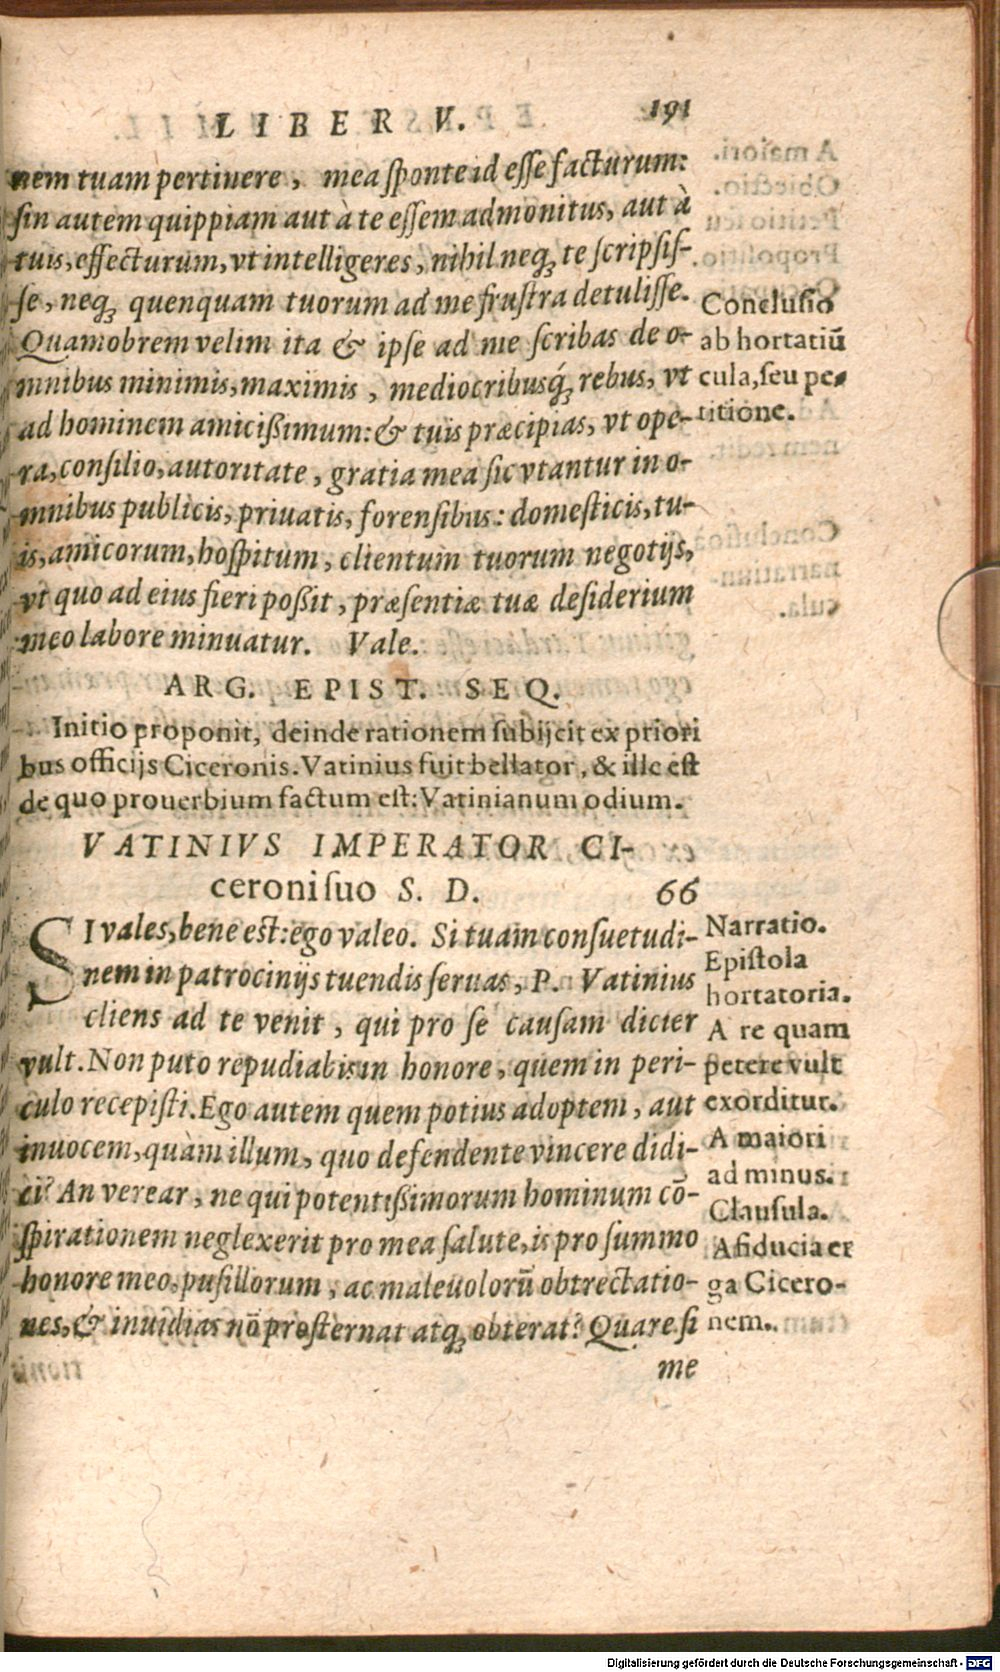 LIBER V. 191
nem tuam pertinere, mea ſponte id eſſe facturum:
ſin autem quippiam aut à te eſſem admonitus, aut à
tuis, effecturum, vt intelligeres, nihil neqꝫ te ſcripſiſ-
ſe, neqꝫ quenquam tuorum ad me fruſtra detuliſſe.
Quamobrem velim ita & ipſe ad me ſcribas de o-
mnibus minimis, maximis, mediocribusq́ꝫ rebus, vt
ad hominem amicißimum: & tuis præcipias, vt ope-
ra, conſilio, autoritate, gratia mea ſic vtantur in o-
mnibus publicis, priuatis, forenſibus: domeſticis, tu-
is, amicorum, hoſpitum, clientum tuorum negotijs,
vt quo ad eius fieri poßit, præſentiæ tuæ deſiderium
meo labore minuatur. Vale.
Concluſio
ab hortatiū
cula, ſeu pe-
titione.
ARG. EPIST. SEQ.
Initio proponit, deinde rationem ſubijcit ex priori
bus officijs Ciceronis. Vatinius fuit bellator, & ille eſt
de quo prouerbium factum eſt: Vatinianum odium.
VATINIVS IMPERATOR CI-
ceroni ſuo S. D. 66
SI vales, bene est: ego valeo. Si tuam conſuetudi-
nem in patrocinijs tuendis ſeruas, P. Vatinius
cliens ad te venit, qui pro ſe cauſam dicier
vult. Non puto repudiabis in honore, quem in peri-
culo recepiſti. Ego autem quem potius adoptem, aut
inuocem, quàm illum, quo defendente vincere didi-
ci? An verear, ne qui potentißimorum hominum cō-
ſpirationem neglexerit pro mea ſalute, is pro ſummo
honore meo, puſillorum, ac maleuolorū obtrectatio-
nes, & inuidias nō proſternat atqꝫ obterat? Quare ſi
me
Narratio.
Epiſtola
hortatoria.
A re quam
petere vult
exorditur.
A maiori
ad minus.
Clauſula.
A fiducia er
ga Cicero-
nem.
Digitalisierung gefördert durch die Deutsche Forschungsgemeinschaft - DFG